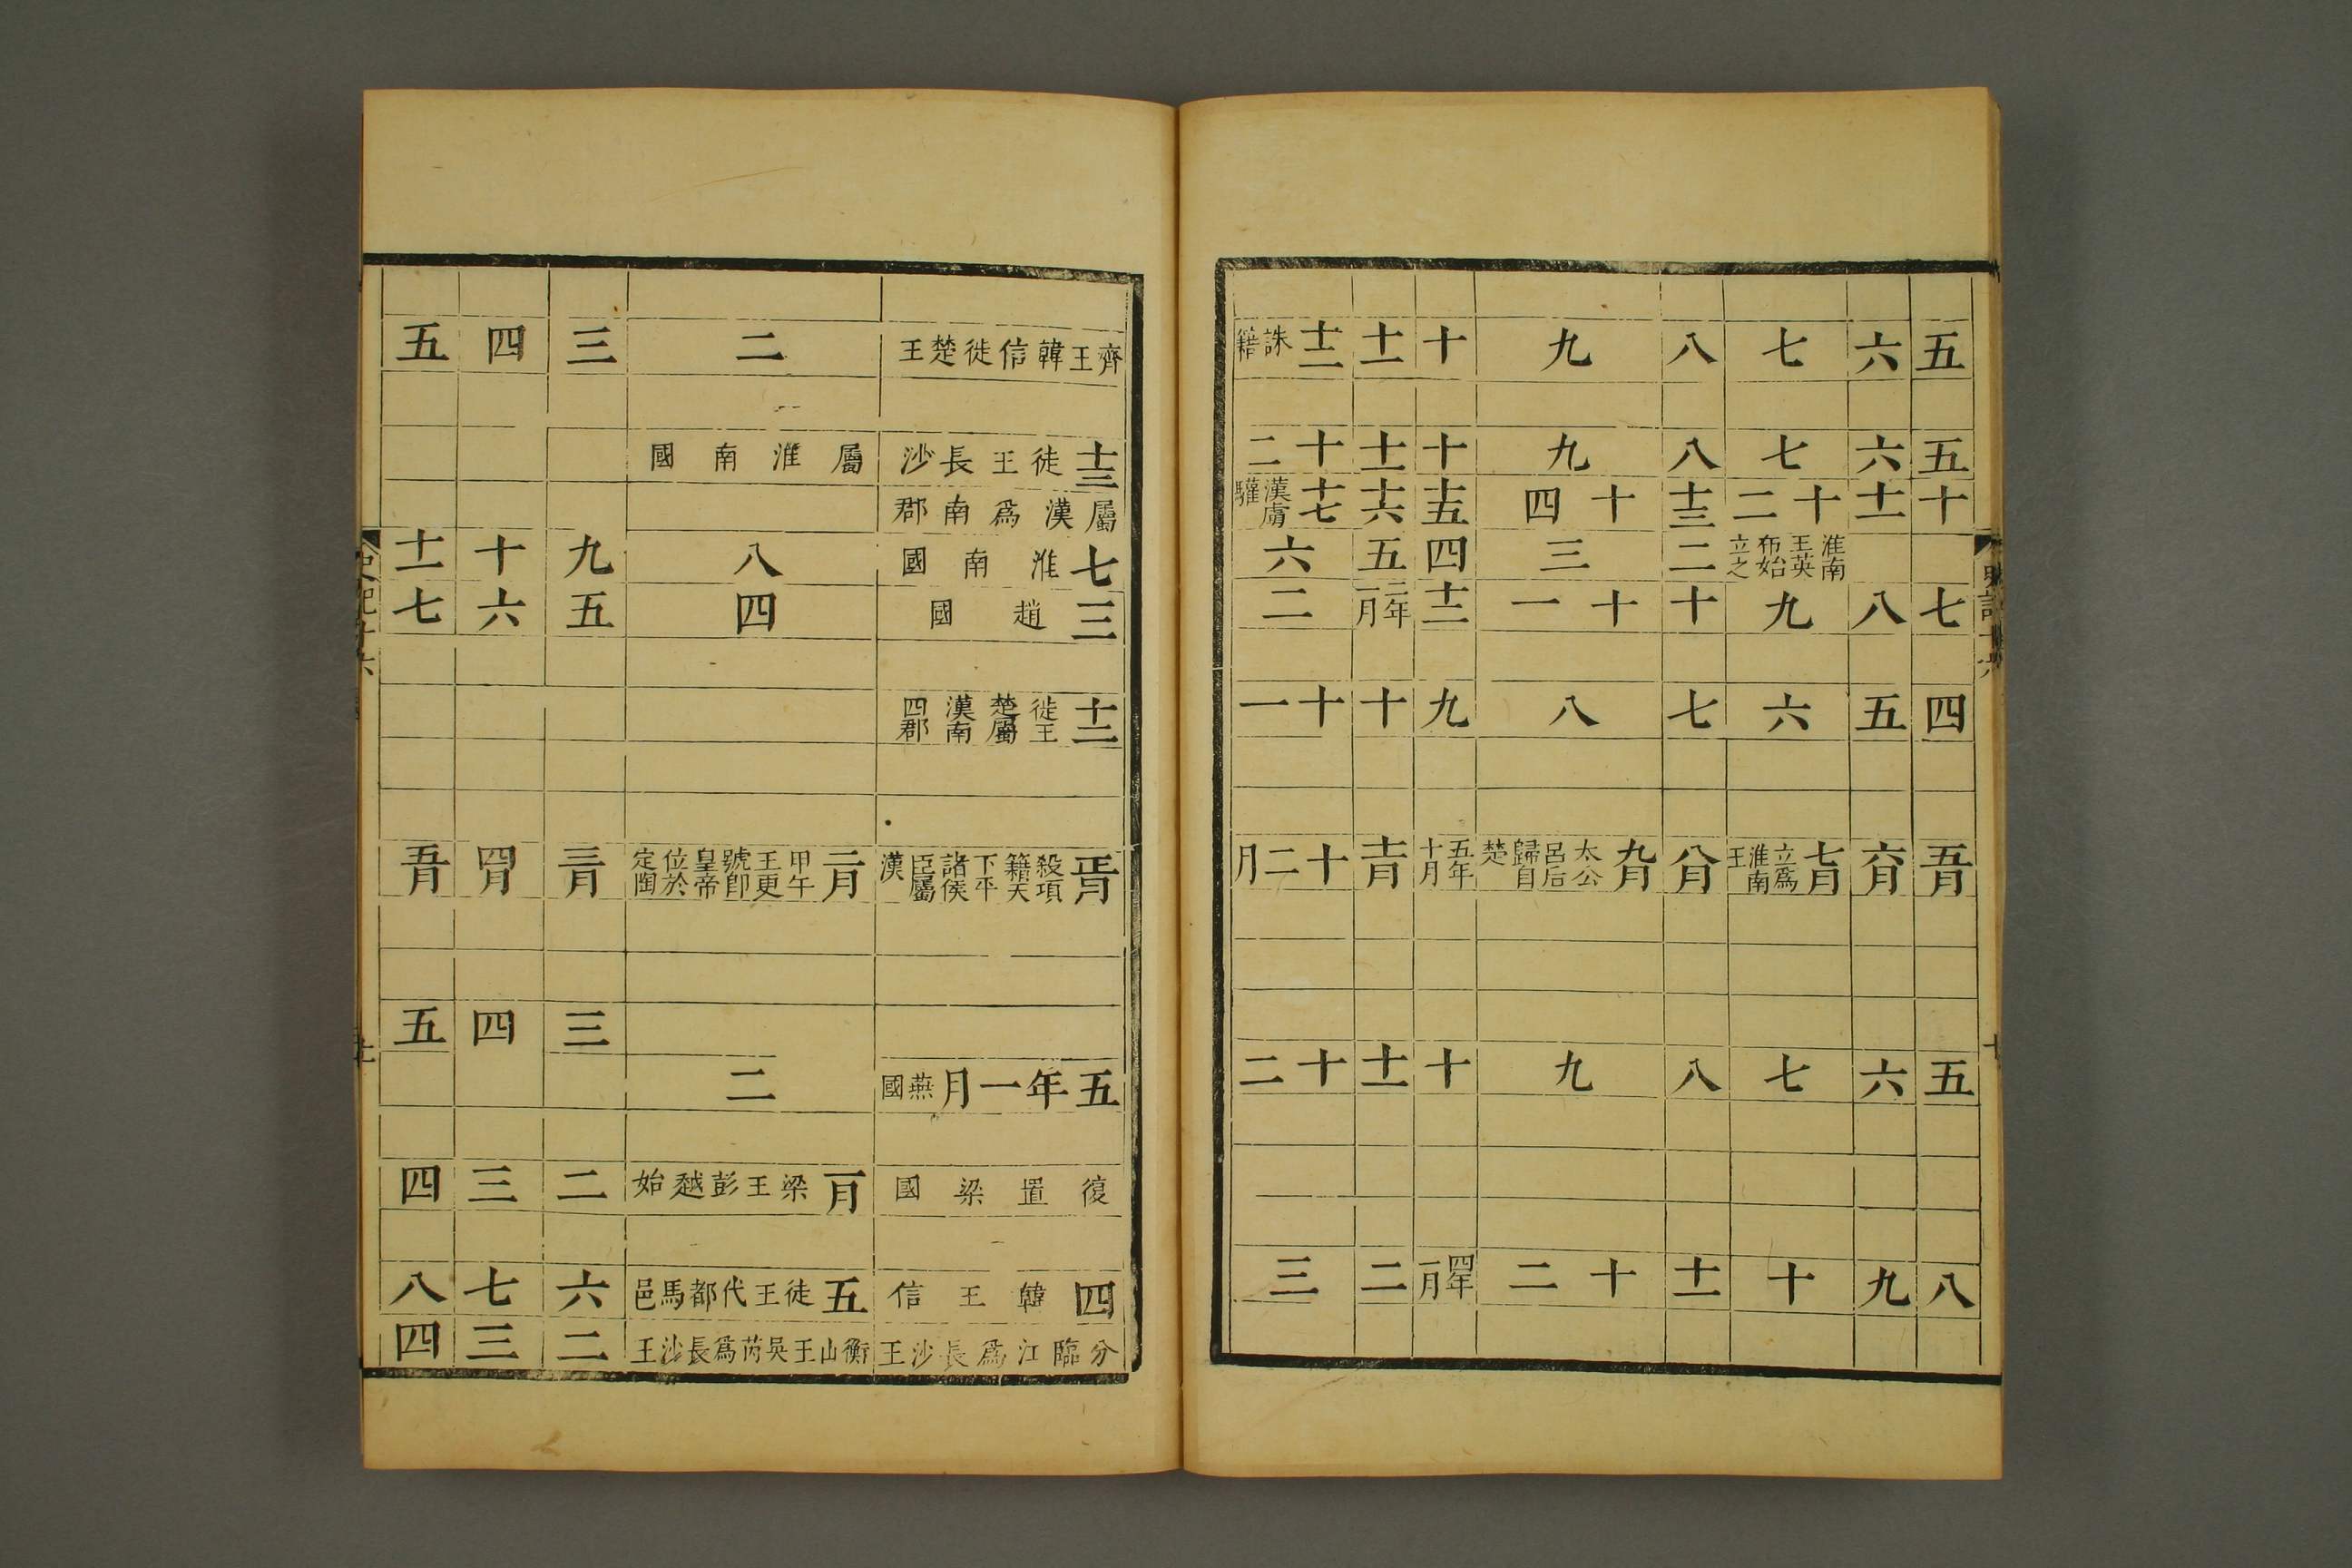 史記十六
五
五
十
七
四
五月
五
八
六
六
十一
八
五
六月
六
九
七
七
十二
淮南王英布始立之
九
六
七月立爲淮南王
七
十
八
八
十三
二
十
七
八月
八
十一
九
九
十四
三
十一
八
九月太公呂后歸自楚
九
十二
十
十
十五
四
十二
九
五年十月
十
四年一月
十一
十一
十六
五
二年一月
十
十一月
十一
二
十二誅籍
十二
十七漢虜驩
六
二
十一
十二月
十二
三
齊王韓信徙楚王
十三徙王長沙
屬漢爲南郡
七淮南國
三趙國
十二徙王楚屬漢南四郡
正月殺項籍天下平諸侯臣屬漢
五年一月燕國
復置梁國
四韓王信
分臨江爲長沙王
二
屬淮南國
八
四
二月甲午王更號卽皇帝位於定陶
二
一月梁王彭越始
五徙王代都馬邑
衡山王吳芮爲長沙王
三
九
五
三月
三
二
六
二
四
十
六
四月
四
三
七
三
五
十一
七
五月
五
四
八
四
史記十六